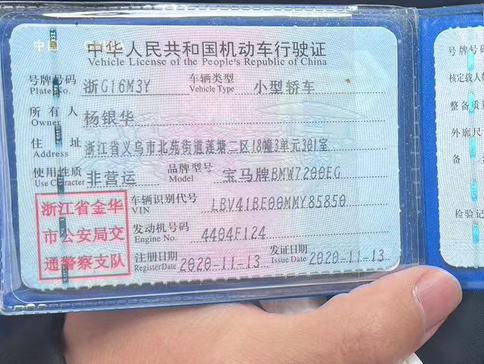 中华人民共和国机动车行驶证
Vehicle License of the People's Republic of China
号牌号码 浙G16M3Y 车辆类型 小型轿车
Plate No. Vehicle Type
所有人 杨银华
Owner
住址 浙江省义乌市北苑街道莲塘二区18幢3单元301室
Address
使用性质 非营运 品牌型号 宝马牌BMW7200EG
Use Character Model
浙江省金华
市公安局交
通警察支队
车辆识别代号 LBV41BE00MMY85850
VIN
发动机号码 4404F124
Engine No.
注册日期 2020-11-13 发证日期 2020-11-13
Register Date Issue Date
号牌号码
核定载人数
整备质量
外廓尺寸
备
检验记